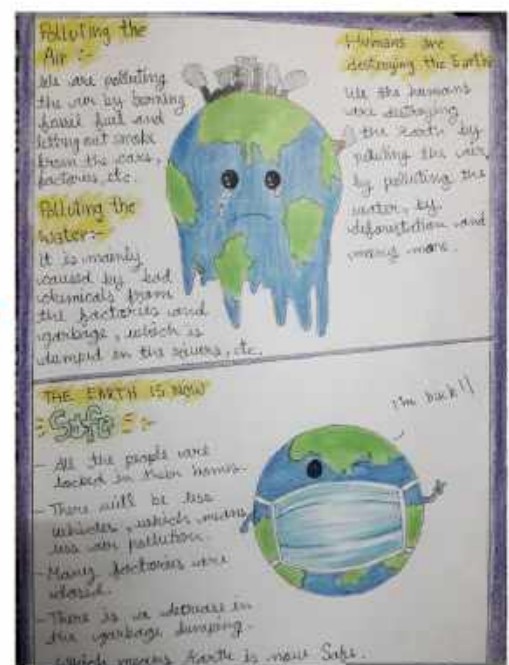 Polluting the
Air :-
We are polluting
the air by burning
fossil fuel and
letting out smoke
from the cars,
factories, etc.
Polluting the
Water:-
It is mainly
caused by bad
chemicals from
the factories and
garbage, which is
dumped in the rivers, etc.
Humans are
destroying the Earth
We the humans
are destroying
the Earth by
polluting the air,
by polluting the
water, by
deforestation and
many more.
THE EARTH IS NOW
Safe :-
- All the people are
locked in their homes.
- There will be less
vehicles, which means
less air pollution.
- Many factories were
closed.
- There is a decrease in
the garbage dumping.
Which means Earth is now Safe.
I'm back!!